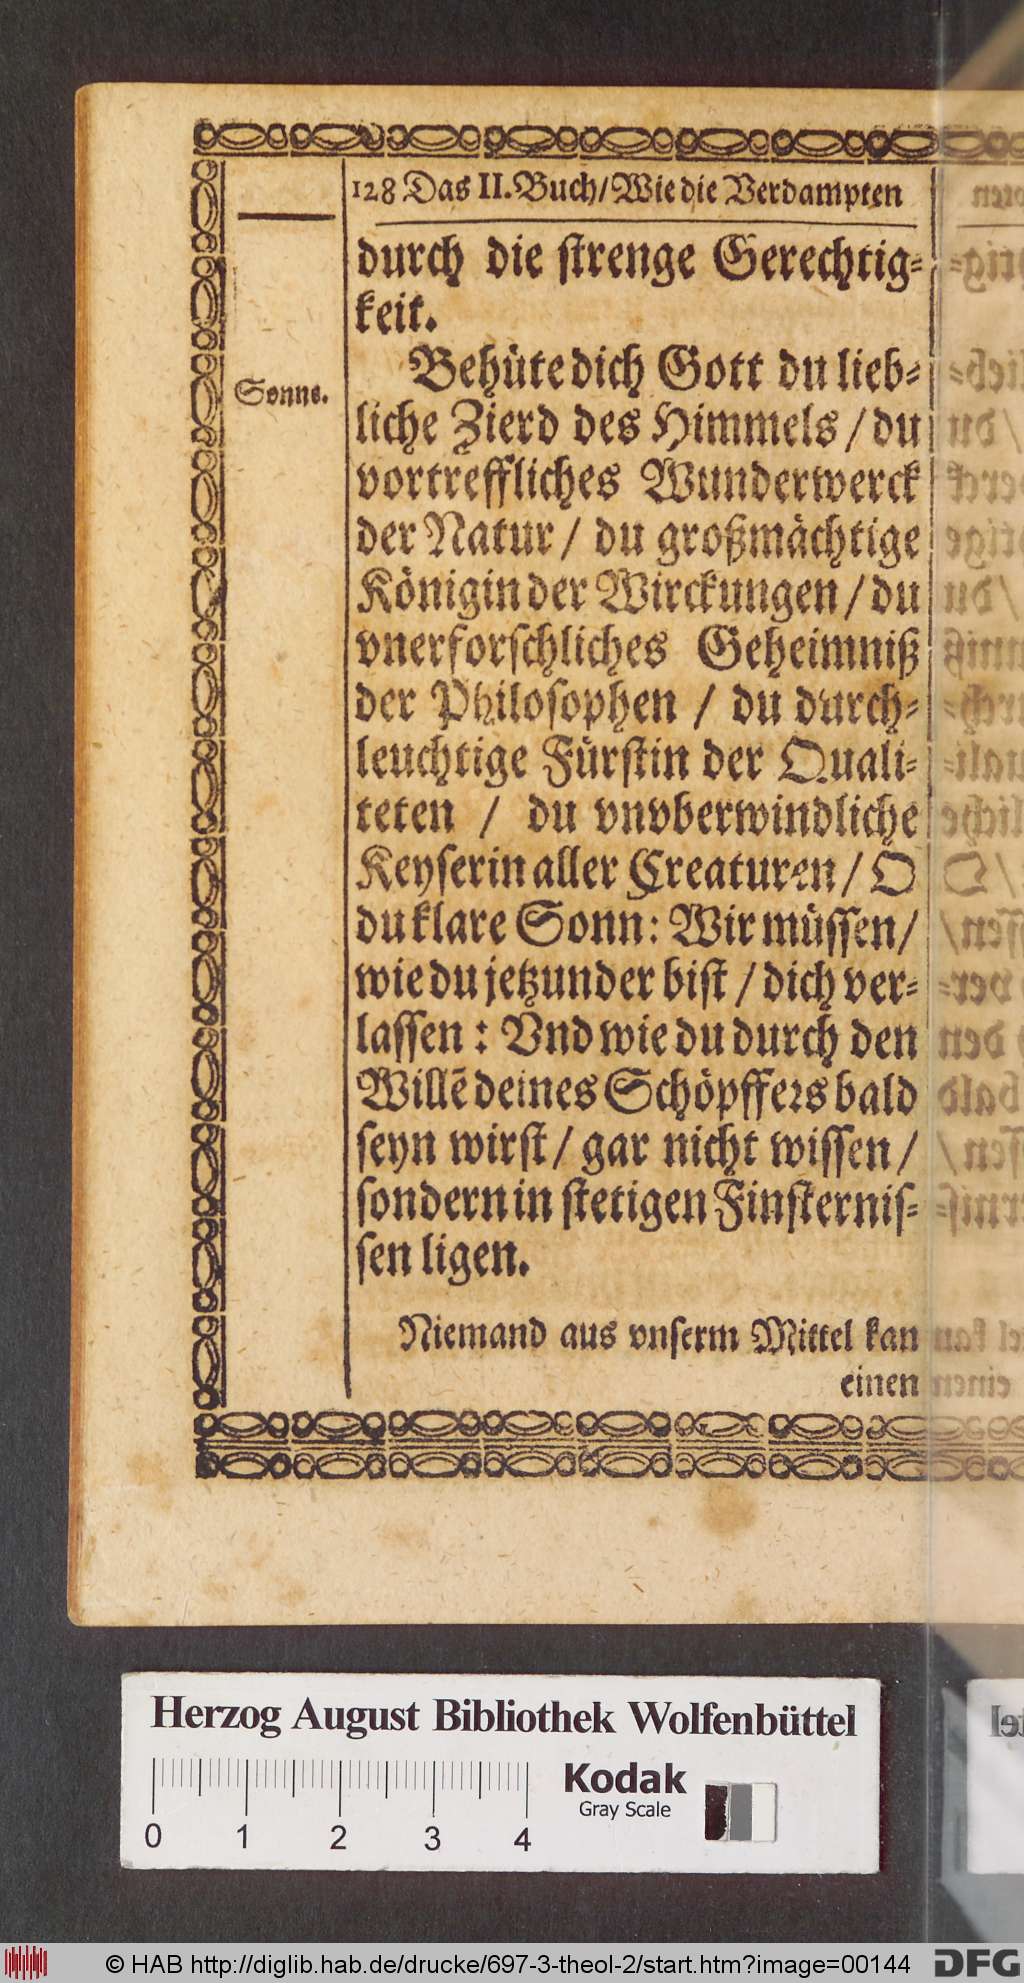 128 Das II. Buch/ Wie die Verdampten
durch die strenge Gerechtig-
keit.
Behüte dich Gott du lieb-
Sonne.
liche Zierd des Himmels / du
vortreffliches Wunderwerck
der Natur / du großmächtige
Königin der Wirckungen / du
vnerforschliches Geheimniß
der Philosophen / du durch-
leuchtige Fürstin der Quali-
teten / du vnvberwindliche
Keyserin aller Creaturen / O
du klare Sonn: Wir müssen/
wie du jetzunder bist / dich ver-
lassen : Vnd wie du durch den
Willē deines Schöpffers bald
seyn wirst / gar nicht wissen /
sondern in stetigen Finsternis-
sen ligen.
Niemand aus vnserm Mittel kan
einen
Herzog August Bibliothek Wolfenbüttel
Kodak
Gray Scale
0 1 2 3 4
© HAB http://diglib.hab.de/drucke/697-3-theol-2/start.htm?image=00144
DFG